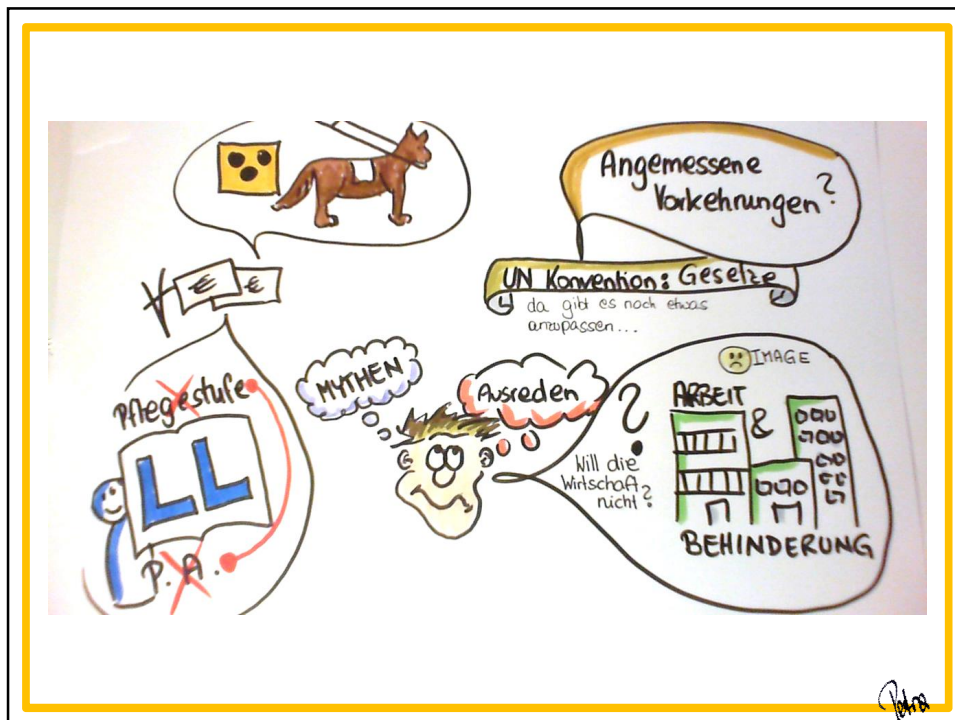 Angemessene
Vorkehrungen?
UN Konvention: Gesetze
da gibt es noch etwas
anzupassen...
€ €
Pflegestufe
LL
P. A.
MYTHEN
Ausreden
?
Will die
Wirtschaft
nicht?
IMAGE
ARBEIT
&
BEHINDERUNG
Petra